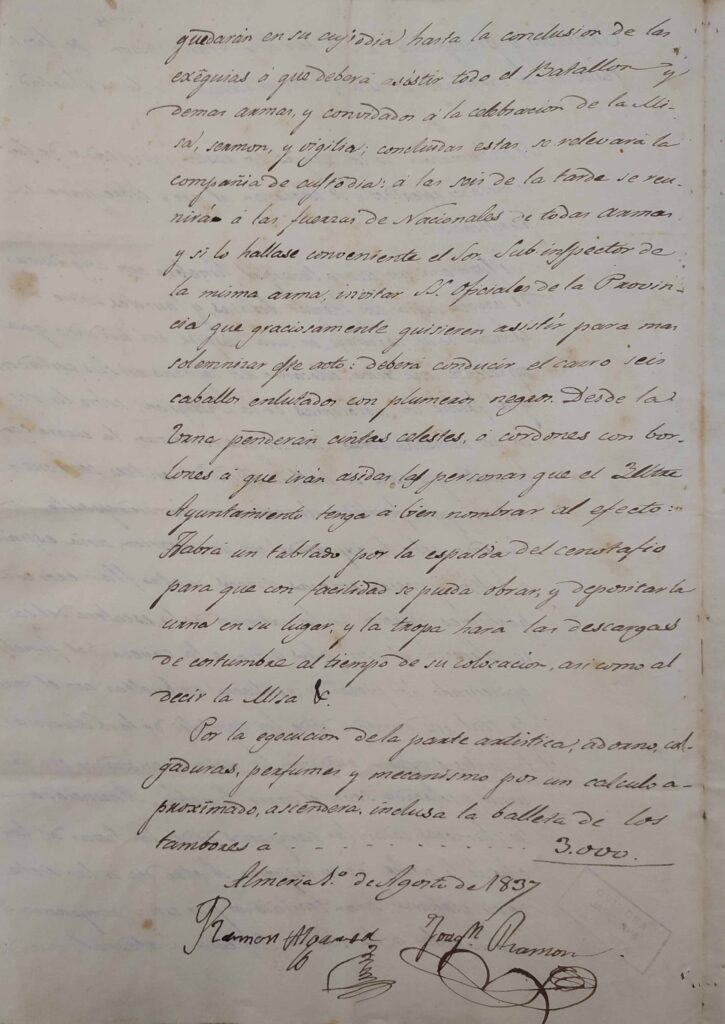 quedarán en su custodia hasta la conclusion de las
exéquias á que deberá asistir todo el Batallon y
demas armas, y convidados á la celebracion de la Mi-
sa, sermon, y vigilia; concluidas estas se relevará la
compañia de custodia: á las seis de la tarde se reu-
nirá á las fuerzas de Nacionales de todas armas
y si lo hallase conveniente el Sor. Sub inspector de
la misma arma, invitar SS. Oficiales de la Provin-
cia que graciosamente quisieren asistir para mas
solemnizar este acto: deberá conducir el carro seis
caballos enlutados con plumeros negros. Desde la
Urna penderán cintas celestes, ó cordones con bor-
lones á que irán asidas las personas que el Iltre
Ayuntamiento tenga á bien nombrar al efecto:
Habrá un tablado por la espalda del cenotafio
para que con facilidad se pueda obrar, y depositar la
urna en su lugar, y la tropa hará las descargas
de costumbre al tiempo de su colocacion, asi como al
decir la Misa &c.
Por la egecucion de la parte artistica, adorno, col-
gaduras, perfumes y mecanismo por un calculo a-
proximado, ascenderá, inclusa la balleta de los
tambores á - - - - - - - - - - 3.000.
Almeria 1.º de Agosto de 1837
Ramon Joaqn. Ramon